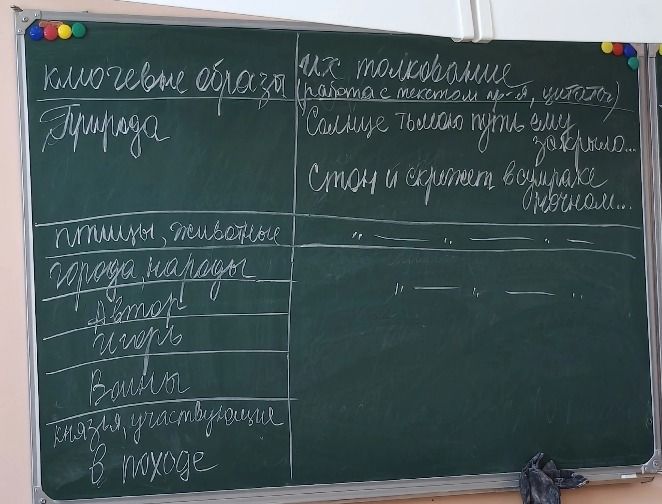 ключевые образы
их толкование
(работа с текстом пр-я, цитаты)
Природа
Солнце тьмою путь ему
закрыло...
Стон и скрежет в сумраке
ночном...
птицы, животные
" — " — " —
города, народы
" — " — "
Автор
Игорь
Воины
князья, участвующие
в походе